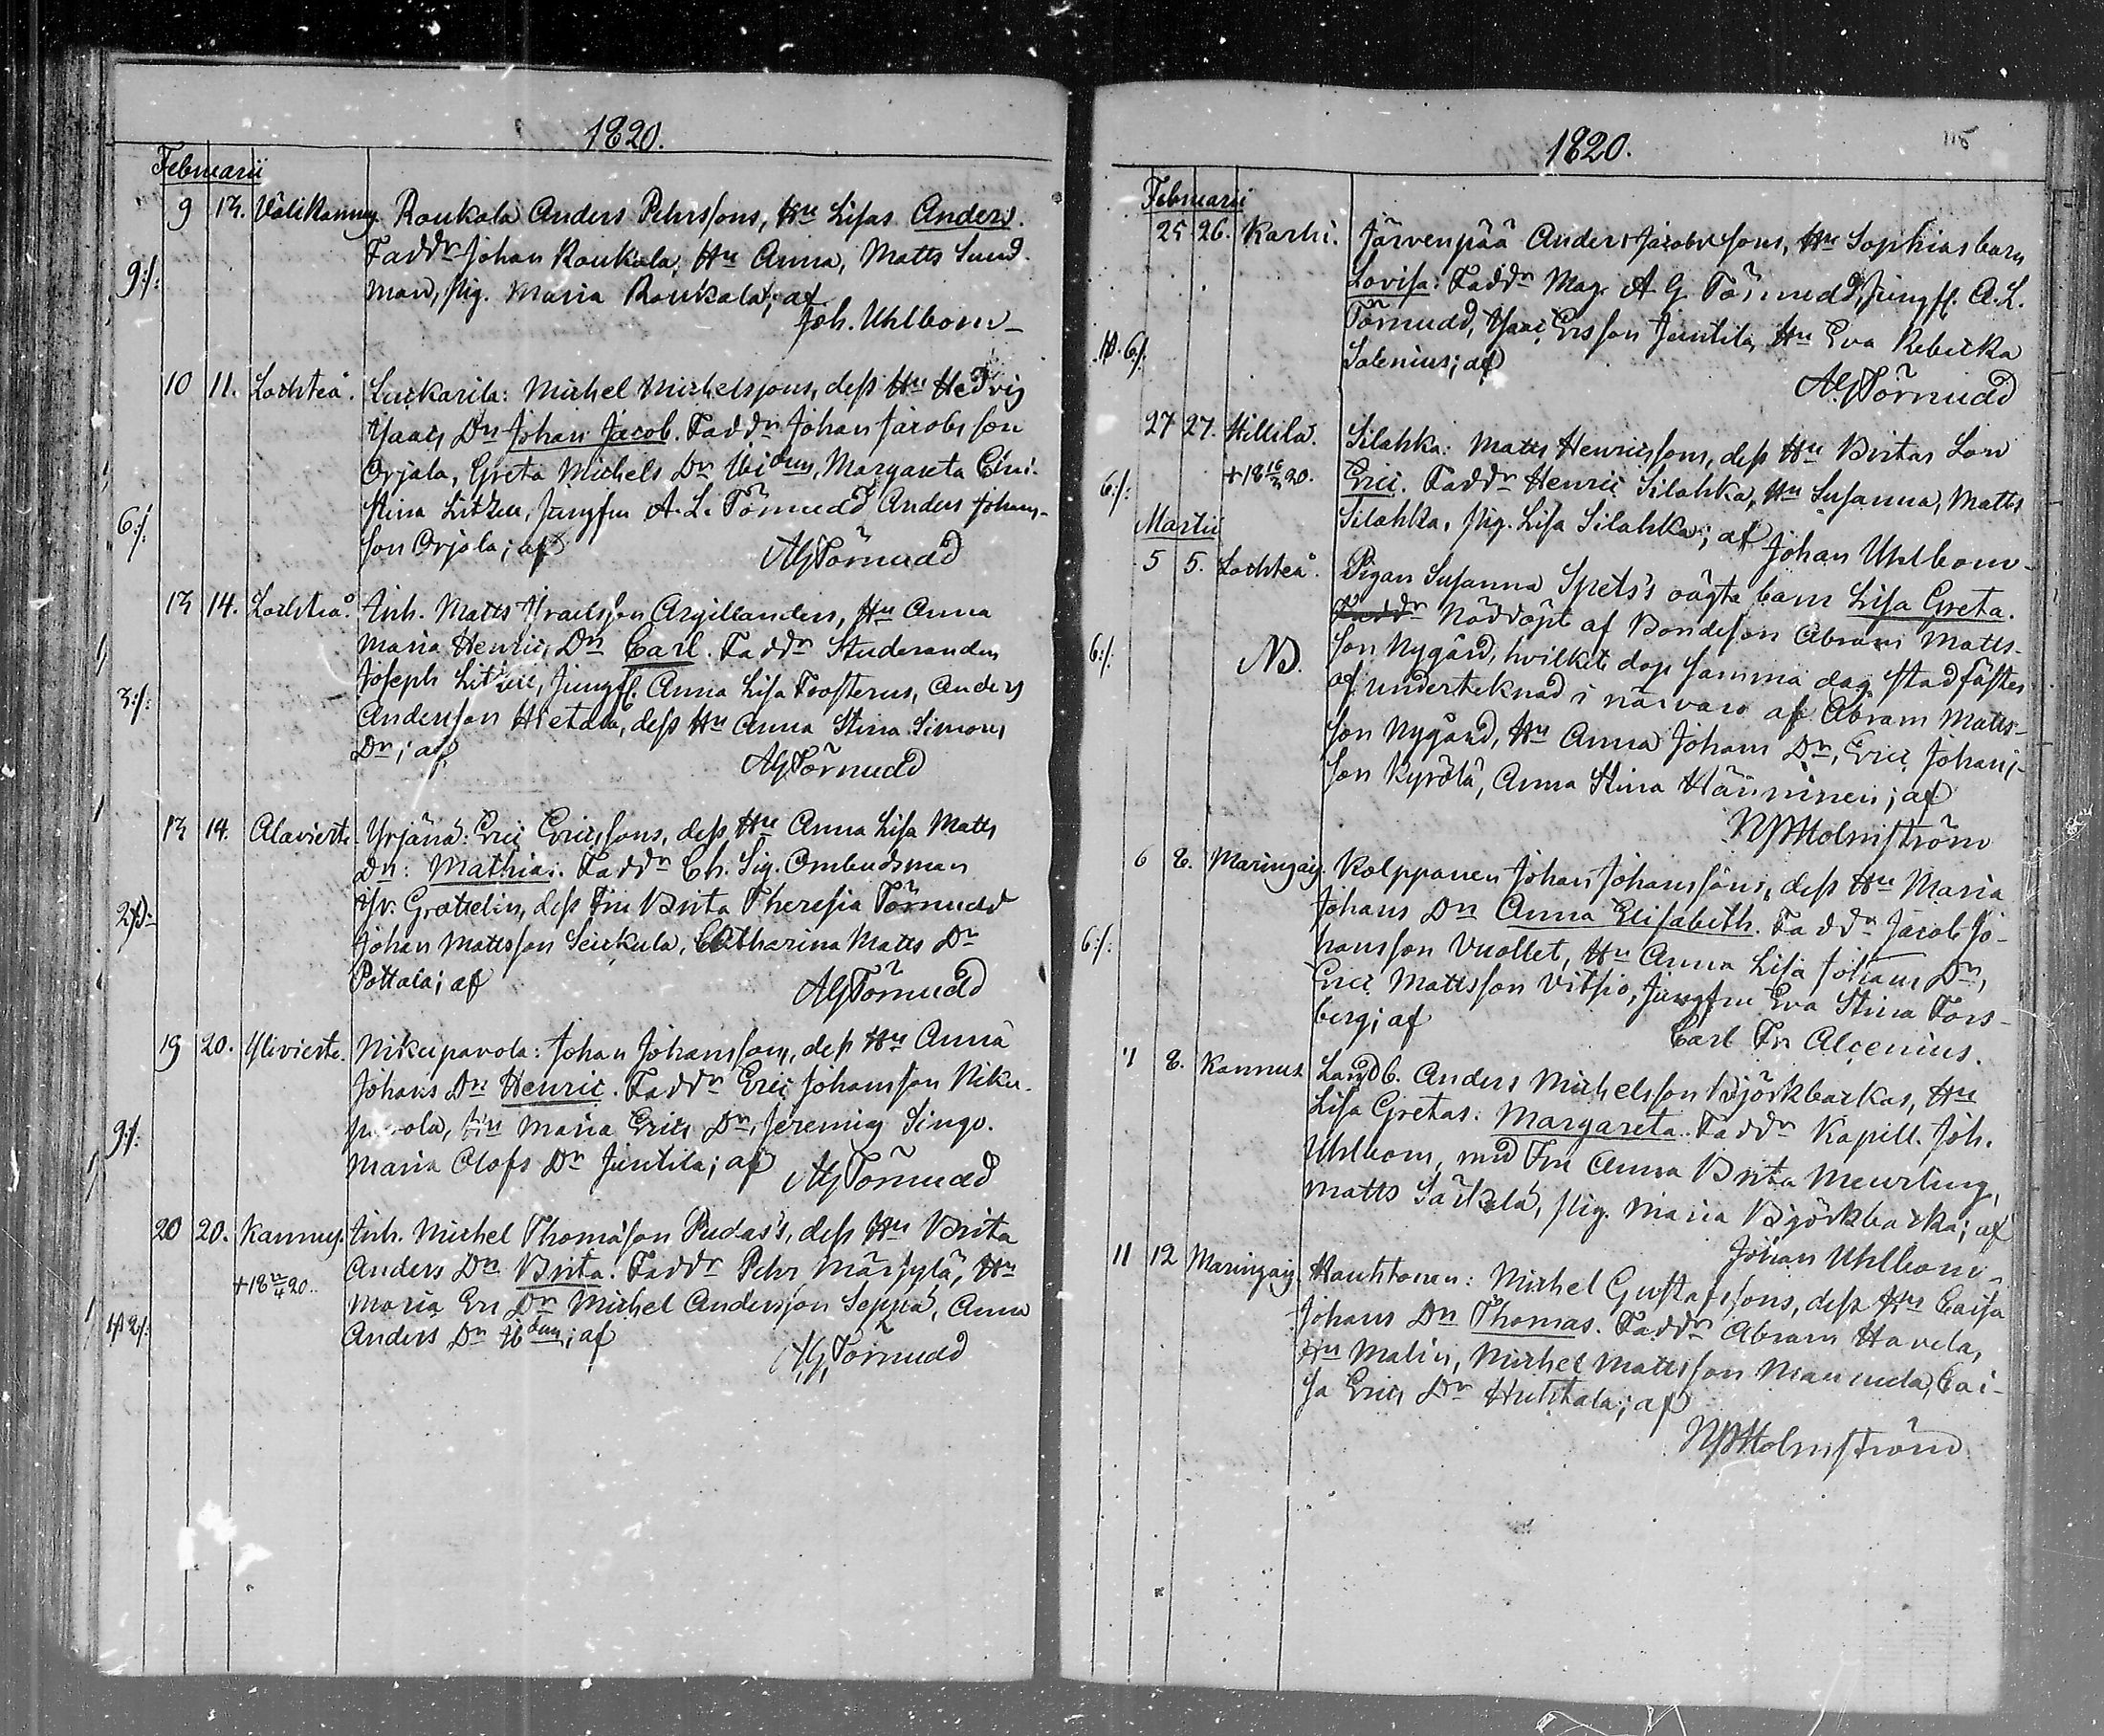 1820.
Februarii
9 13. Välikannus. Roukala Anders Pehrssons, Hu Lisas Anders.
Faddr Johan Roukala, Hu Anna, Matts Sund-
9:/: man, pig. Maria Roukala; af
Joh. Uhlbom
10 11. Lochteå. Luckarila: Michel Michelssons, dess Hu Hedvig
Isaacs Dr Johan Jacob. Faddr Johan Jacobsson
Orjala, Greta Michels Dr ibidem, Margareta Chri-
stina Litzen, Jungfru A. L. Törnudd Anders Johans-
6:/: son Orjala; af AGTörnudd
13 14. Lochteå. Inh. Matts Israelsson Argillanders, Hu Anna
Maria Henrics Dr Carl. Faddr Studeranden
Joseph Litzen, Jungf. Anna Lisa Frosterus, Anders
3:/: Andersson Hietala, dess Hu Anna Stina Simons
Dr; af AGTörnudd
13 14. Alavierte. Yrjänä: Eric Ericssons, dess Hu Anna Lisa Matts
Dr: Mathias. Faddr Ch. Sig. Ombudsman
2:/: Isr. Grættelin, dess Fru Brita Theresia Törnudd
Johan Mattsson Seikula, Catharina Matts Dr
Pottala; af AGTörnudd
19 20. Ylivierte. Nikupavola: Johan Johanssons, dess Hu Anna
Johans Dr Henric. Faddr Eric Johansson Niku-
9:/: pavola, Hu Maria Erics Dr, Jeremias Singo.
Maria Olofs Dr Juntila; af AGTörnudd
20 20. Kannus. Inh. Michel Thomasson Pudas's, dess Hu Brita
+18 4 20. Anders Dr Brita. Faddr Pehr Märsylä, Hu
Maria Ers Dr Michel Andersson Seppä, Anna
Anders Dr ibdem; af AGTörnudd
1820.
Februarii
25 26. Karhi. Järvenpää Anders Jacobssons, Hu Sophias barn
Lovisa: Faddr Mag. A G Törnudd, Jungf. A. L.
Törnudd, Isaac Ersson Juntila, Hu Eva Rebecka
Salenius; af
AGTörnudd
27 27. Hillilä. Silahka: Matts Henricssons, dess Hu Britas Son
6:/: +18 16/3 20. Eric. Faddr Henric Silahka, Hu Susanna, Matts
Silahka, pig. Lisa Silahka; af Johan Uhlbom
Martii
5 5. Lochteå. Pigan Susanna Spets's oägta barn Lisa Greta.
Faddr Nöddöpt af Bondeson Abram Matts-
6:/: NB. son Nygård, hvilket dop samma dag stadfästes
af undertecknad i närvaro af Abram Matts-
son Nygård, Hu Anna Johans Dr, Eric Johans-
son Kyrölä, Anna Stina Hänninen; af
Holmström
6 8. Maringais. Kolppanen Johan Johanssons, dess Hu Maria
Johans Dr Anna Elisabeth. Faddr Jacob Jo-
6:/: hansson Vuollet, Hu Anna Lisa Johans Dr,
Eric Mattsson Vitsio, Jungfru Eva Stina Fors-
berg; af Carl Fr Alcenius.
7 8. Kannus Landb. Anders Michelsson Björkbackas, Hu
Lisa Gretas: Margareta. Faddr Kapell. Joh.
Uhlbom, med Fru Anna Brita Meurling,
Matts Särkelä, pig. Maria Björkbacka; af
Johan Uhlbom
11 12 Maringais. Hauhtonen: Michel Gustafssons, dess Hu Caisa
Johans Dr Thomas. Faddr Abram Havela,
Hu Malin, Michel Mattsson Maunula, Cai-
sa Erics Dr Huhtala; af
Holmström